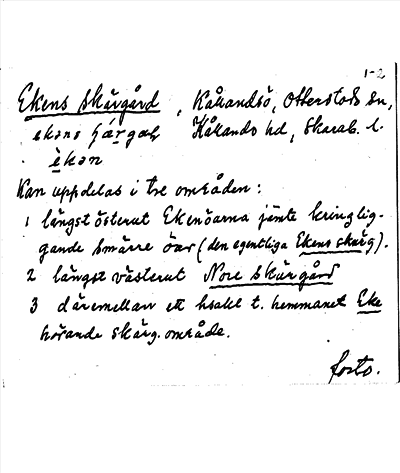 1-2
Ekens skärgård, Kållandsö, Otterstads sn,
ekəns Kållands hd, Skarab. l.
èkən
Kan uppdelas i tre områden:
1 längst österut Ekenöarna jämte kringlig-
gande smärre öar (den egentliga Ekens skärg).
2 längst västerut Nore skärgård
3 däremellan ett hsakl t. hemmanet Eke
hörande skärg. område.
forts.